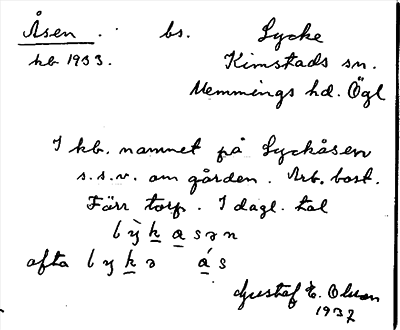 Åsen . bs. Lycke
kb 1933. Kimstads sn.
Memmings hd. Ögl
I kb. namnet på Lyckåsen
s.s.v. om gården. Arb. bost.
Förr torp. I dagl. tal
lỳkasən
ofta lykə ás
Gustaf E. Olson
1937